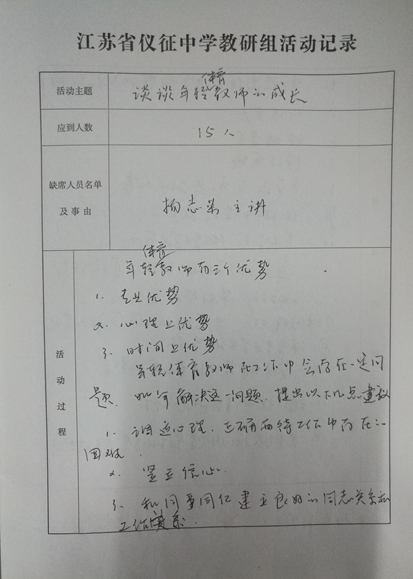 江苏省仪征中学教研组活动记录
活动主题
谈谈年轻体育教师的成长
应到人数
15人
缺席人员名单
及事由
杨志 主讲
活动过程
年轻体育教师有三个优势
1. 专业优势
2. 心理上优势
3. 时间上优势
年轻体育教师在工作中会存在一定问
题. 如何解决这一问题, 提出以下几点建议
1. 调适心理, 正确面对待工作中存在的
困难.
2. 坚立信心.
3. 和同事同仁建立良好的同志关系和
工作关系.